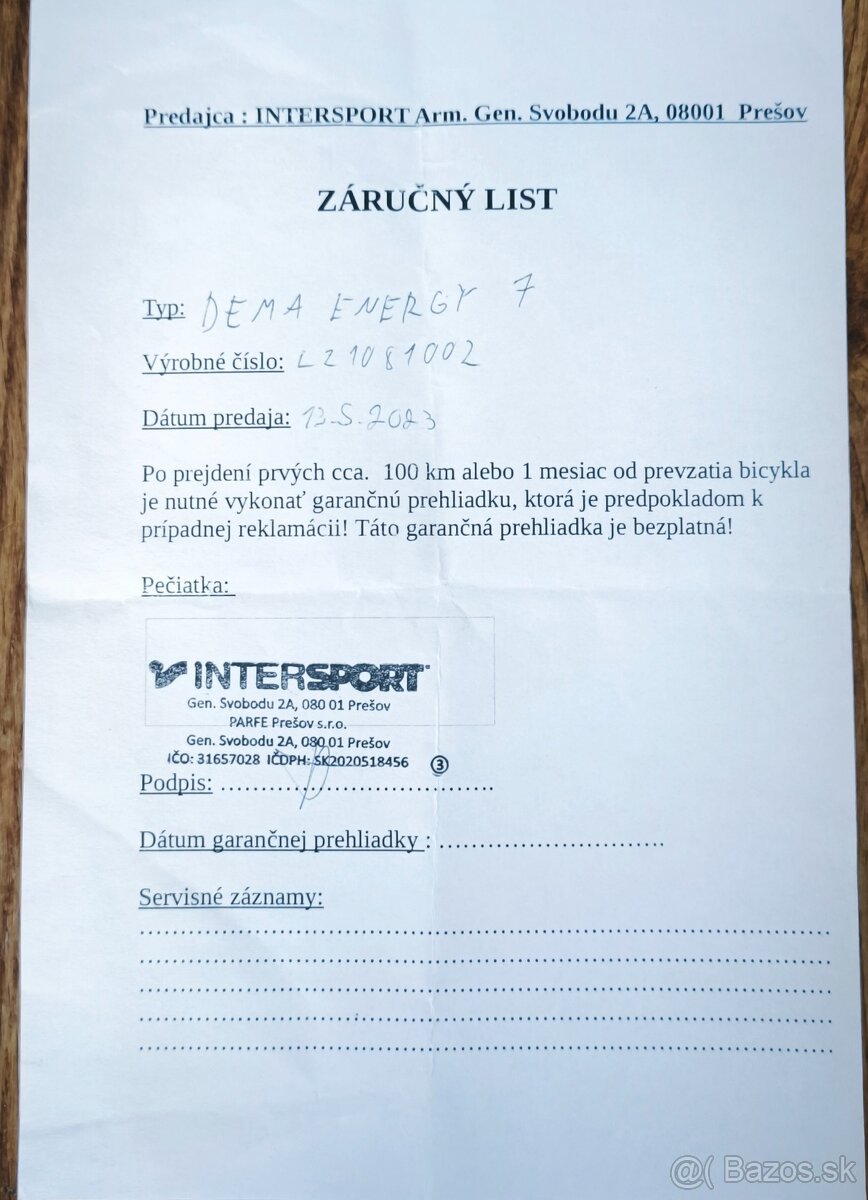 Predajca : INTERSPORT Arm. Gen. Svobodu 2A, 08001 Prešov
ZÁRUČNÝ LIST
Typ: DEMA ENERGY 7
Výrobné číslo: LZ1081002
Dátum predaja: 13.5.2023
Po prejdení prvých cca. 100 km alebo 1 mesiac od prevzatia bicykla
je nutné vykonať garančnú prehliadku, ktorá je predpokladom k
prípadnej reklamácii! Táto garančná prehliadka je bezplatná!
Pečiatka:
INTERSPORT
Gen. Svobodu 2A, 080 01 Prešov
PARFE Prešov s.r.o.
Gen. Svobodu 2A, 080 01 Prešov
IČO: 31657028 IČDPH: SK2020518456 ③
Podpis: ....................................
Dátum garančnej prehliadky : ..............................
Servisné záznamy:
@( Bazos.sk